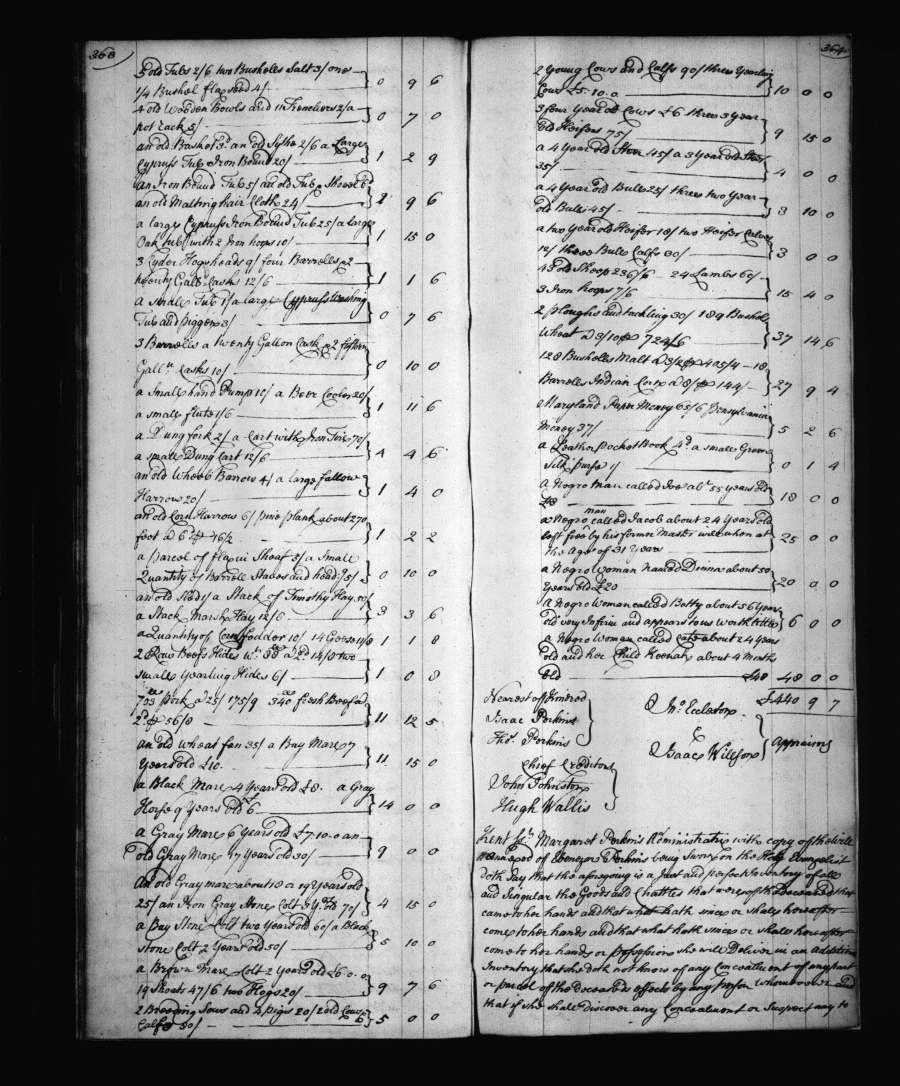 363
5 old Tubs 2/6 two Busholls Salt 3/ one } 0 9 6
1/4 Bushol flaxseed 4/
4 old Wooden Bowls and 11 Trenchers 2/ a } 0 7 0
pot rack 5/
an old Basket 3d an old Sythe 2/6 a Large } 1 2 9
Cypruss Tub Iron Bound 20/
an Iron Bound Tub 5/ an old Tub & Shovel 6d } 1 9 6
an old Malting hair Cloth 24/
a large Cypruss Iron Bound Tub 25/ a Large } 1 15 0
Oak tub with 2 Iron hoops 10/
3 Cyder Hogsheads 9/ four Barrells & 2 } 1 1 6
twenty Galln Casks 12/6
a small Tub 1/ a large Cypruss Washing } 0 7 6
Tub and piggon 3/
3 Barrolls a twenty Gallon Cask & 2 fifteen } 0 10 0
Galln Casks 10/
a Small hand Pump 10/ a Beer Cooler 20/ } 1 11 6
a small flute 1/6
a Dung fork 2/ a Cart with Iron Tire 70/ } 4 4 6
a small Dung Cart 12/6
an old Wheel Barrow 4/ a large fallow } 1 4 0
Harrow 20/
an old Corn Harrow 6/ pine plank about 270 } 1 2 2
foot
a parcel of flax in Sheaf 5/ a Small } 0 10 0
Quantity of Barroll Staves and heads 5/
an old Sled 1/ a Stack of Timothy Hay 50/ } 3 3 6
a Stack Marsh Hay 12/6
a Quantity of Corn fodder 10/ 14 Geese 11/8 } 1 1 8
2 Raw Beefs Hides wt 88 a 2d 14/8 two } 1 0 8
small yearling Hides 6/
703 pork a 25/ 175/9 340 fresh Beef a } 11 12 5
2d 56/8
an old Wheat fan 35/ a Bay Mare 7 } 11 15 0
years old £10
a Black Mare 4 Years old £8 a Gray } 14 0 0
Horse 9 Years old £6
a Gray Mare 6 Years old £7.10.0 an } 9 0 0
old Gray Mare 17 Years old 30/
An old Gray mare about 18 or 19 Years old } 4 15 0
25/ an Iron Gray Stone Colt 3 Yrs old 70/
a Bay Stone Colt two Years old 60/ a Black } 5 10 0
Stone Colt 2 Years old 50/
a Brown Mare Colt 2 Years old £6.0.0 } 9 7 6
19 Shoats 47/6 two Hogs 20/
2 Breeding Sows and 4 pigs 20/ 2 old Cows & } 5 0 0
Calfs 80/
364
2 Young Cows and Calfs 90/ three Yearling } 10 0 0
Cows £5.10.0
3 four Year old Cows £6 three 3 year } 9 15 0
old Heifers 75/
a 4 Year old Steer 45/ a 3 Year old Steer } 4 0 0
35/
a 4 Year old Bull 25/ three two Year } 3 10 0
old Bulls 45/
a two Year old Heifer 18/ two Heifer Calves } 3 0 0
12/ three Bull Calfs 30/
43 old Sheep 236/6 24 Lambs 60/ } 15 4 0
3 Iron hoops 7/6
2 ploughs and tackling 30/ 189 Bushels } 37 14 6
Wheat a 3/10 724/6
128 Busholls Malt a 3/2 405/4 18 } 27 9 4
Barrolls Indian Corn a 8/ 144/
Maryland Paper Money 65/6 Pensylvania } 5 2 6
Money 37/
a Leather pocket Book 4d a small Green } 0 1 4
Silk purse 1/
a Negro man called Joe abt 55 years old } 18 0 0
£18
a Negro man called Jacob about 24 Years old } 25 0 0
left free by his former Master will when at
the Age of 31 Years
a Negro Woman named Dinna about 50 } 20 0 0
Years old £20
a Negro Woman called Betty about 56 Years } 6 0 0
old very Infirm and appears to us Worth little
a Negro Woman called Cate about 24 Years
old and her Child about 4 Months
old £48 48 0 0
£440 9 7
Nearest of Kindred
Isaac Perkins
Thos Perkins
Jno Eccleston
&
Isaac Willson
Appraisers
Chief Creditors
John Johnston
Hugh Wallis
Kent Sct Margaret Perkins Administratrix with copy of the Will
annexed of Ebenezer Perkins being Sworn on the Holy Evangelist
doth Say that the aforegoing is a Just and perfect Inventory of all
and Singular the Goods and Chattles that were of the Deceased that
came to her hands and that what hath since or shall hereafter
come to her hands and that what hath since or shall hereafter
come to her hands or possession she will Deliver in an addition
Inventory that she doth not know of any Concealment of any part
or parcel of the Deceaseds effects by any Person whomsoever and
that if she shall discover any Concealment or Suspect any to